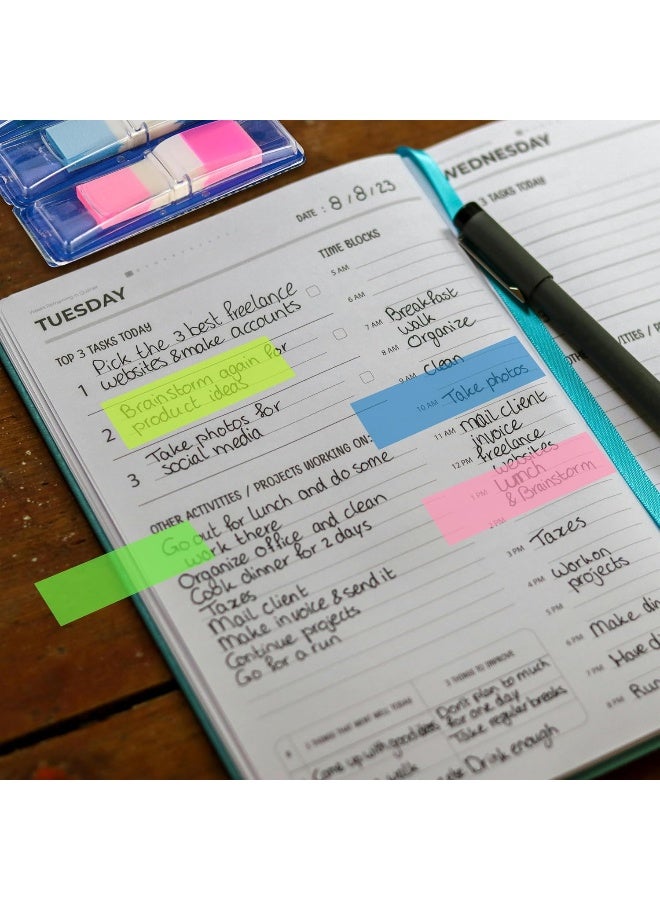 Weeks Remaining in Quarter
TUESDAY
DATE : 8/8/23
TOP 3 TASKS TODAY
1 Pick the 3 best freelance
websites & make accounts
2 Brainstorm again for
product ideas
3 Take photos for
social media
OTHER ACTIVITIES / PROJECTS WORKING ON:
Go out for lunch and do some
work there
Organize office and clean
Cook dinner for 2 days
Taxes
Mail client
Make invoice & send it
Continue projects
Go for a run
TIME BLOCKS
5 AM
6 AM
7 AM Breakfast
walk
8 AM Organize
9 AM clean
10 AM Take photos
11 AM mail client
invoice
12 PM freelance
websites
1 PM Lunch
& Brainstorm
2 PM
3 PM Taxes
4 PM work on
projects
5 PM
6 PM Make din
7 PM Have d
8 PM Run
3 THINGS THAT WENT WELL TODAY
Come up with good ideas
walk
3 THINGS TO IMPROVE
Don't plan to much
for one day
Take regular breaks
Drink enough
WEDNESDAY
3 TASKS TODAY